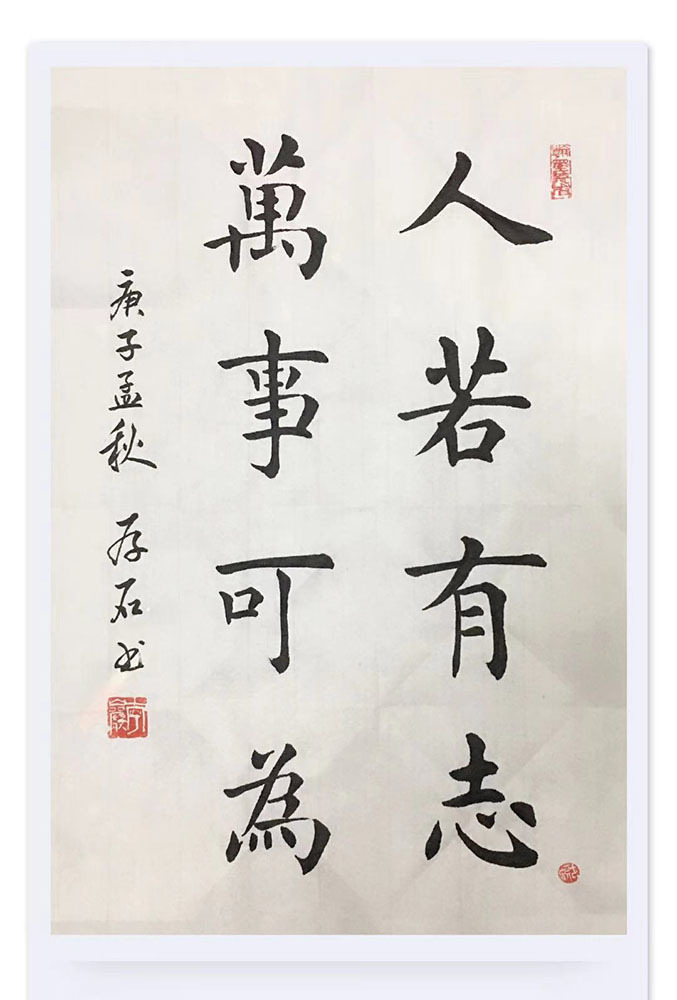 人若有志
萬事可為
庚子孟秋 存石书